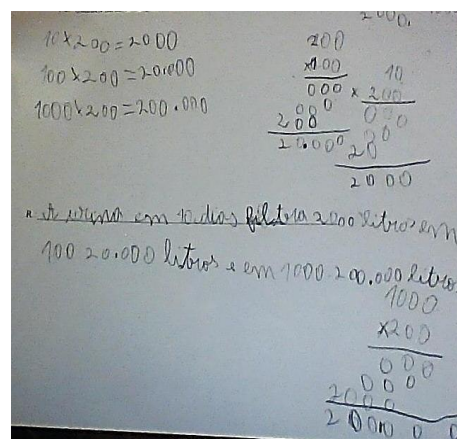 2000.
10 x 200 = 2000
100 x 200 = 20.000
1000 x 200 = 200.000
200
x100
000
000
200
20.000
10
x 200
000
00
20
2000
em 10 dias filtra 2000 litros em
100 20.000 litros e em 1000 200.000 litros
1000
x200
000
000
2000